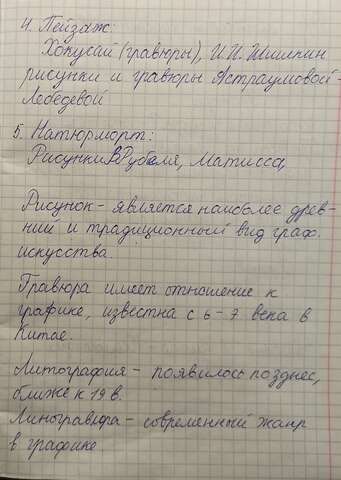 4. Пейзаж:
Хокусай (гравюры), И.И. Шишкин
рисунки и гравюры Астраумовой-
Лебедевой
5. Натюрморт:
Рисунки Врубеля, Матисса,
Рисунок - является наиболее древ-
ний и традиционный вид граф.
искусства
Гравюра имеет отношение к
графике, известна с 6-7 века в
Китае.
Литография - появилось позднее,
ближе к 19 в.
Линогравюра - современный жанр
в графике